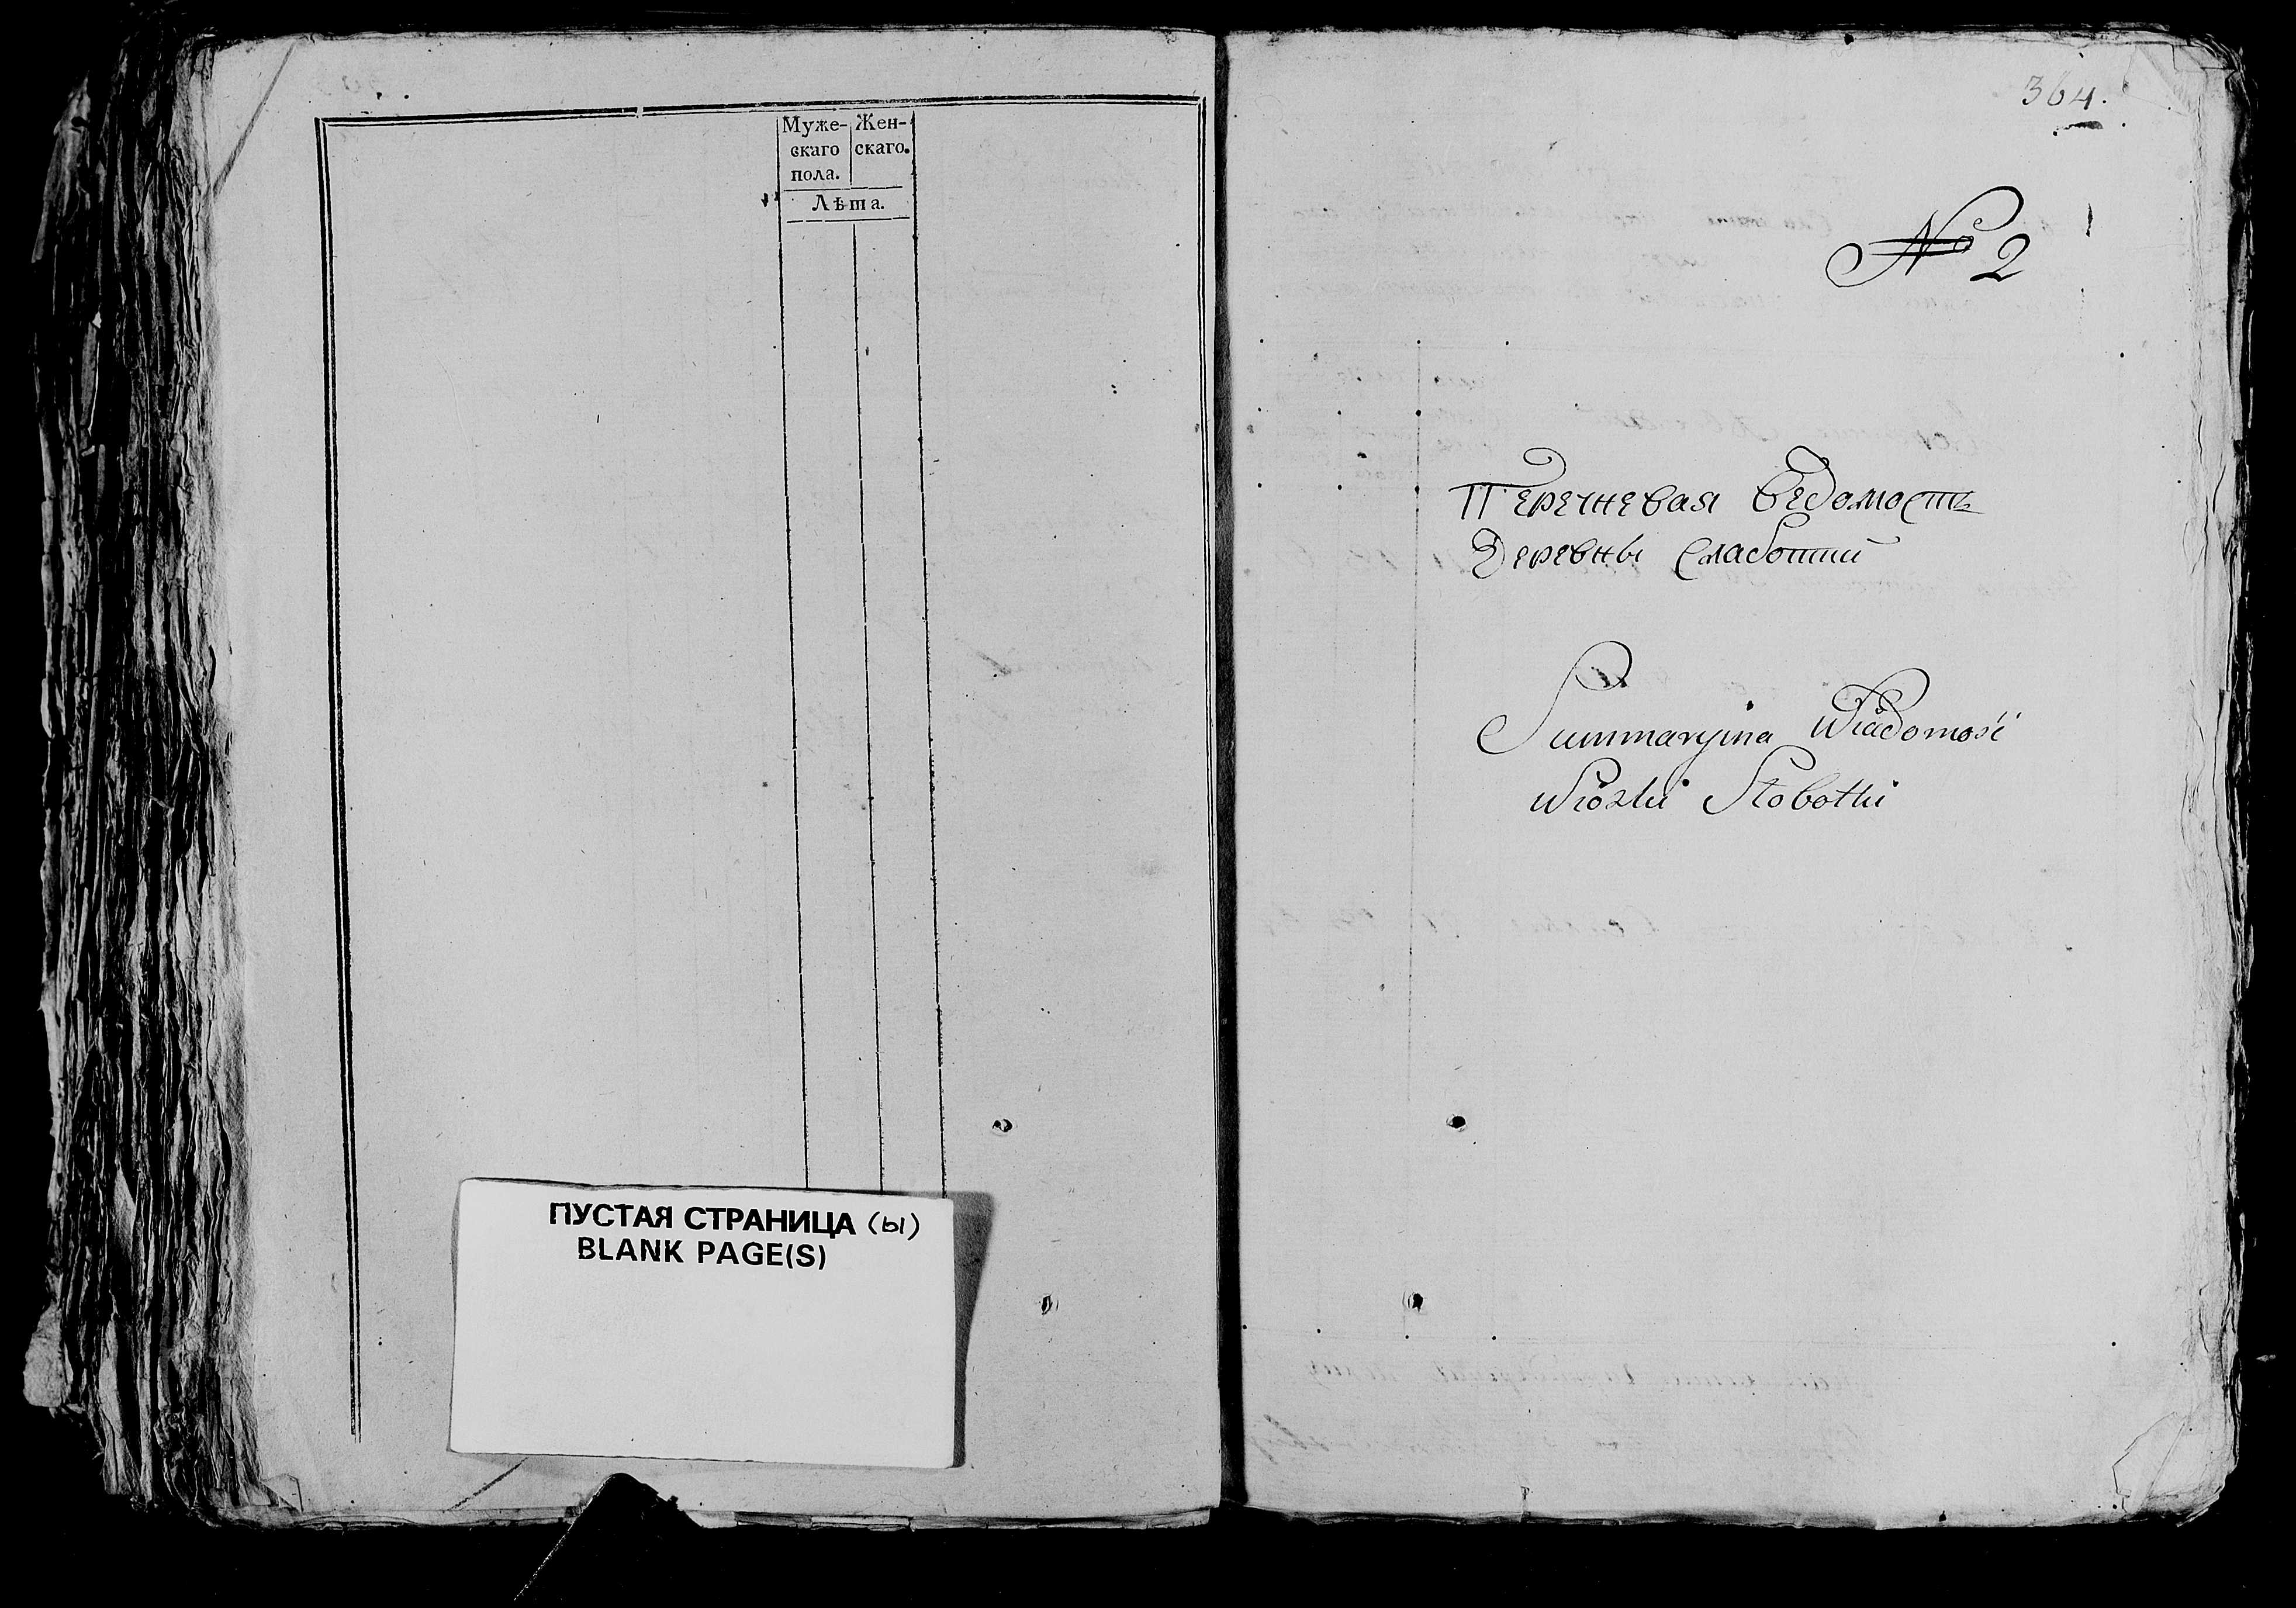 Муже- Жен-
скаго скаго.
пола.
Лѣта.
ПУСТАЯ СТРАНИЦА (ы)
BLANK PAGE(S)
364.
№ 2
Перечневая ведомость
Деревны Слаботки
Summaryina Wiadomość
Wioski Słobotki